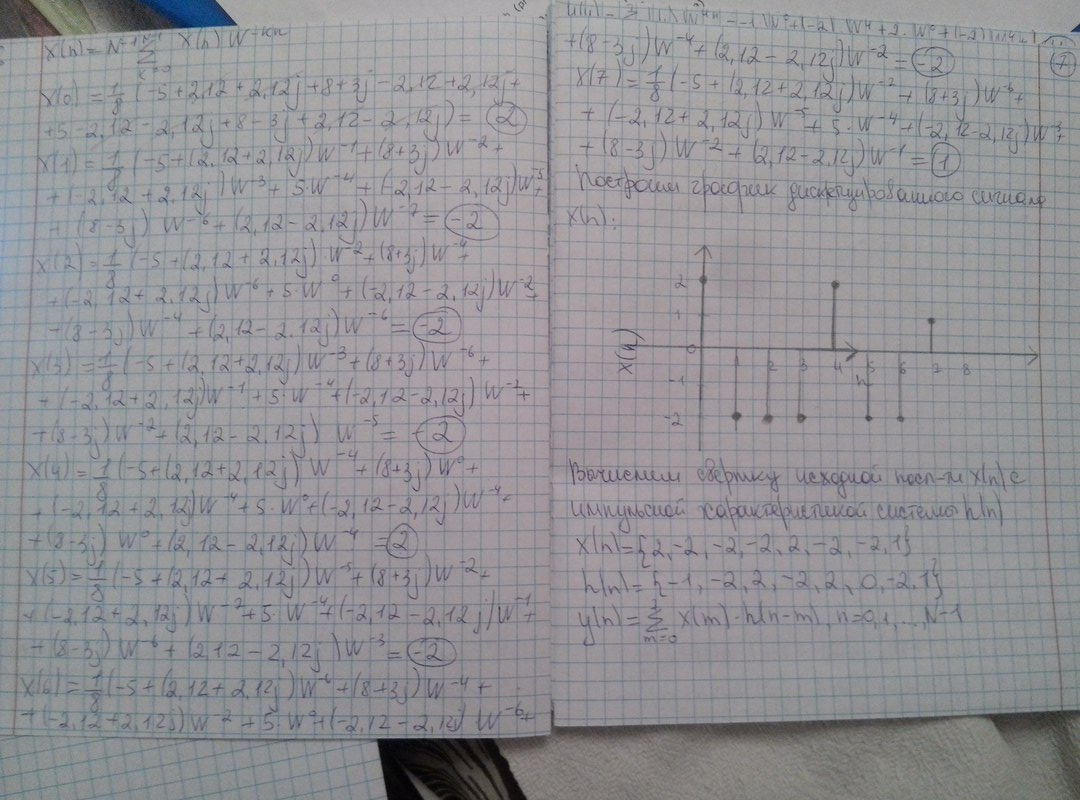 X(n) = N⁻¹ Σ X(n) W⁻ᵏⁿ
X(0) = 1/8 (-5+2,12+2,12j+8+3j-2,12+2,12j+
+5-2,12-2,12j+8-3j+2,12-2,12j) = 2
X(1) = 1/8 (-5+(2,12+2,12j)W⁻¹+(8+3j)W⁻²+
+(-2,12+2,12j)W⁻³+5·W⁻⁴+(-2,12-2,12j)W⁻⁵+
+(8-3j)W⁻⁶+(2,12-2,12j)W⁻⁷ = -2
X(2) = 1/8 (-5+(2,12+2,12j)W⁻²+(8+3j)W⁻⁴+
+(-2,12+2,12j)W⁻⁶+5·W⁰+(-2,12-2,12j)W⁻²+
+(8-3j)W⁻⁴+(2,12-2.12j)W⁻⁶ = -2
X(3) = 1/8 (-5+(2,12+2,12j)W⁻³+(8+3j)W⁻⁶+
+(-2,12+2,12j)W⁻¹+5·W⁻⁴+(-2,12-2,12j)W⁻²+
+(8-3j)W⁻²+(2,12-2,12j) W⁻⁵ = -2
X(4) = 1/8 (-5+(2,12+2,12j)W⁻⁴+(8+3j)W⁰+
+(-2,12+2,12j)W⁻⁴+5·W⁰+(-2,12-2,12j)W⁻⁴+
+(8-3j)W⁰+(2,12-2,12j)W⁻⁴ = 2
X(5) = 1/8 (-5+(2,12+2,12j)W⁻⁵+(8+3j)W⁻²+
+(-2,12+2,12j)W⁻⁷+5·W⁻⁴+(-2,12-2,12j)W⁻¹+
+(8-3j)W⁻⁶+(2,12-2,12j)W⁻³ = -2
X(6) = 1/8 (-5+(2,12+2,12j)W⁻⁶+(8+3j)W⁻⁴+
+(-2,12+2,12j)W⁻²+5·W⁰+(-2,12-2,12j)W⁻⁶+
+(8-3j)W⁻⁴+(2,12-2,12j)W⁻² = -2
7
X(7) = 1/8 (-5+(2,12+2,12j)W⁻⁷+(8+3j)W⁻⁶+
+(-2,12+2,12j)W⁻⁵+5·W⁻⁴+(-2,12-2,12j)W⁻³+
+(8-3j)W⁻²+(2,12-2,12j)W⁻¹ = 1
Построим график дискретизированного сигнала
X(n):
X(n)
2
1
0 1 2 3 4 5 6 7 8
n
-1
-2
Вычислим свертку исходной посл-ти X(n) с
импульсной характеристикой системы h(n)
X(n)={2,-2,-2,-2,2,-2,-2,1}
h(n)={-1,-2,2,-2,2,0,-2,1}
y(n)=Σ X(m)·h(n-m), n=0,1,...N-1
m=0